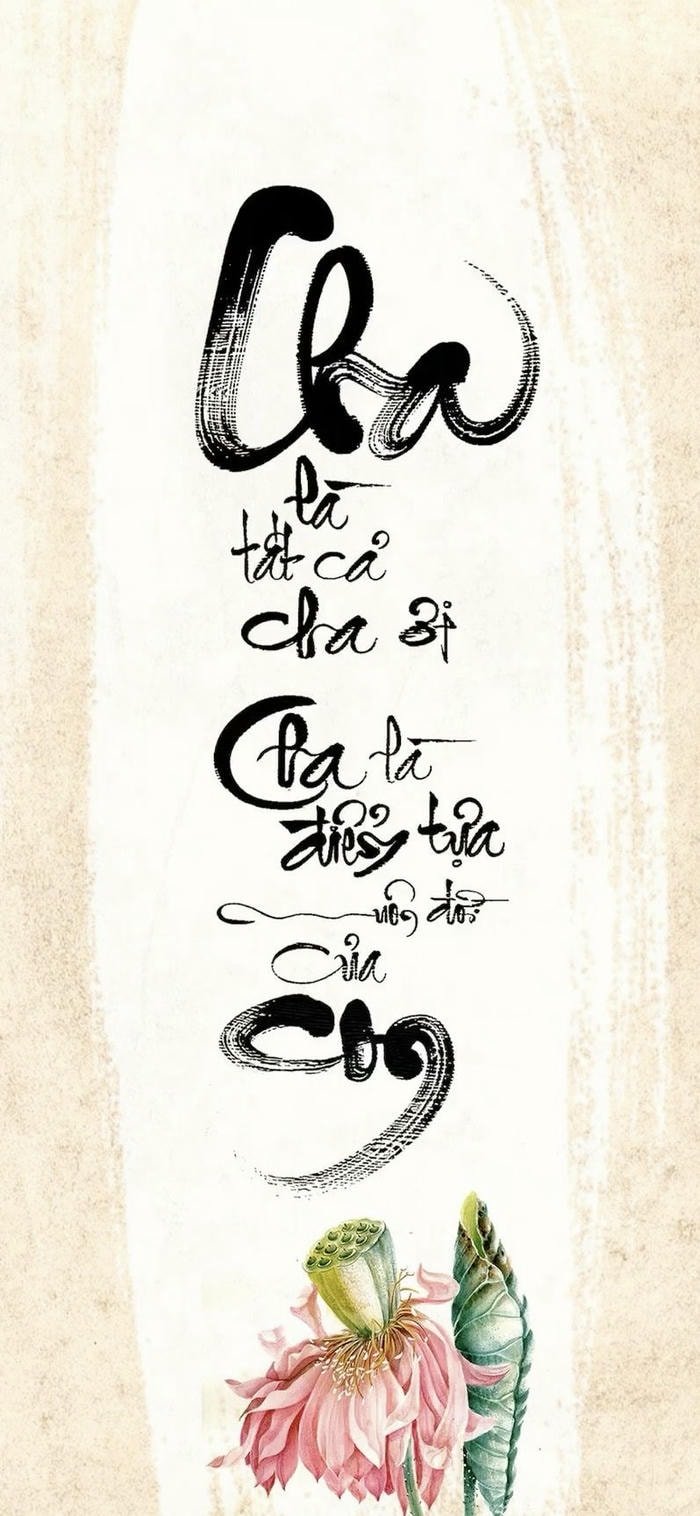 Cha
là
tất cả
cha ơi
Cha là
điểm tựa
cuộc đời
của
con